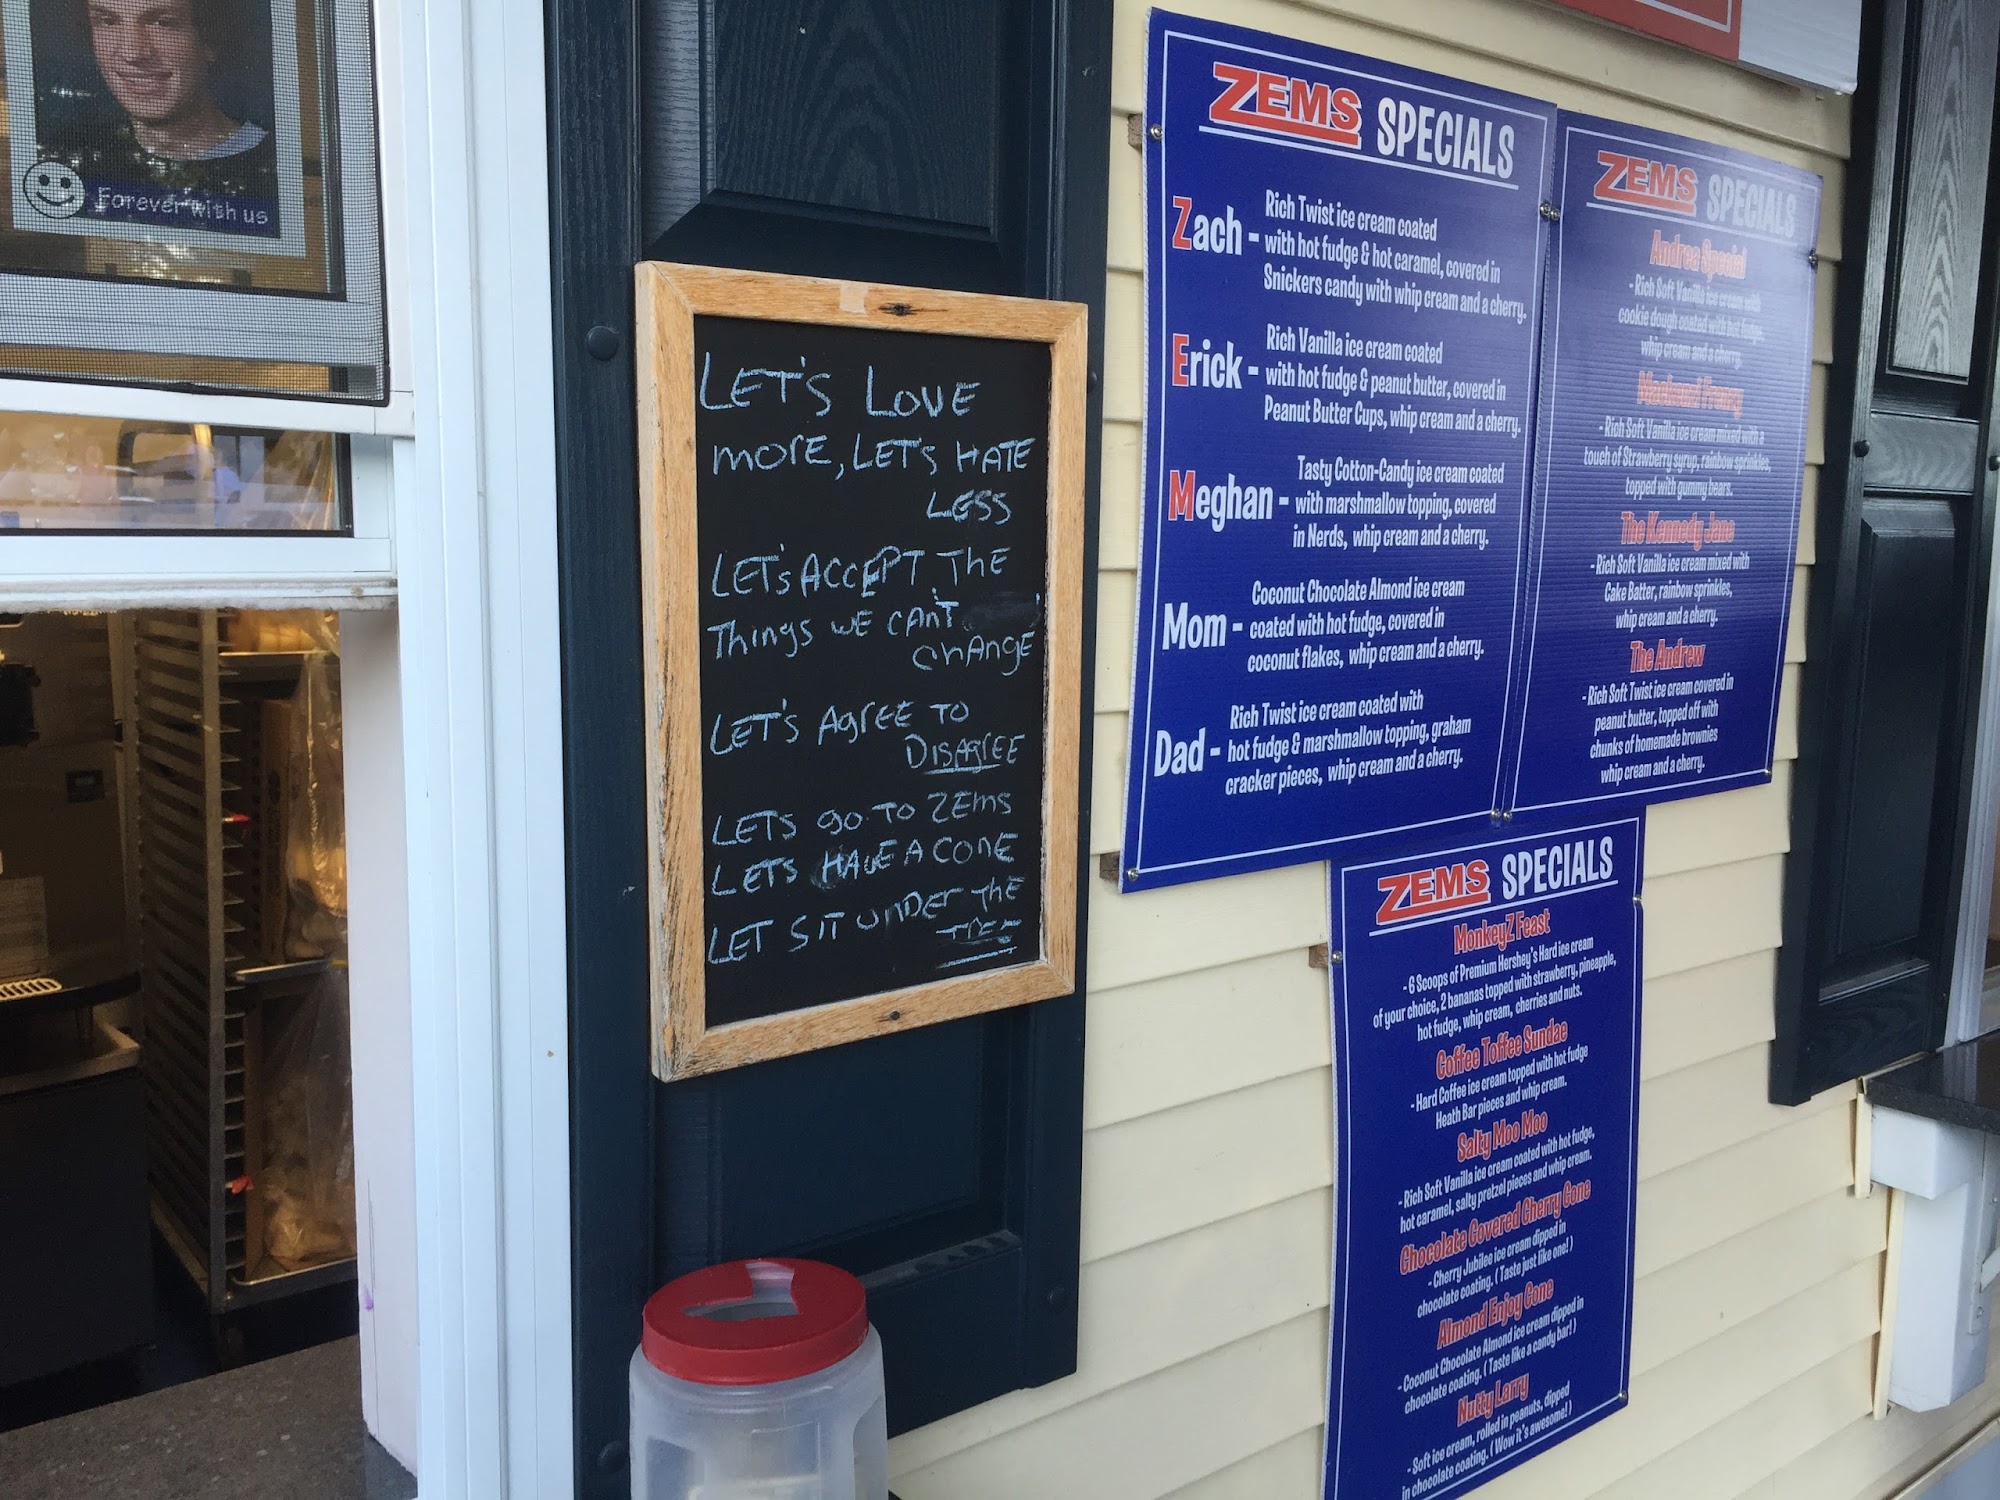 Forever with us
LET'S LOVE
MORE, LET'S HATE
LESS
LET'S ACCEPT THE
THINGS WE CAN'T
CHANGE
LET'S AGREE TO
DISAGREE
LETS GO TO ZEMS
LETS HAVE A CONE
LET SIT UNDER THE
TREE
ZEMS SPECIALS
Zach - Rich Twist ice cream coated
with hot fudge & hot caramel, covered in
Snickers candy with whip cream and a cherry.
Erick - Rich Vanilla ice cream coated
with hot fudge & peanut butter, covered in
Peanut Butter Cups, whip cream and a cherry.
Meghan - Tasty Cotton-Candy ice cream coated
with marshmallow topping, covered
in Nerds, whip cream and a cherry.
Mom - Coconut Chocolate Almond ice cream
coated with hot fudge, covered in
coconut flakes, whip cream and a cherry.
Dad - Rich Twist ice cream coated with
hot fudge & marshmallow topping, graham
cracker pieces, whip cream and a cherry.
ZEMS SPECIALS
Andrea Special
- Rich Soft Vanilla ice cream with
cookie dough coated with hot fudge,
whip cream and a cherry.
Frenzy
- Rich Soft Vanilla ice cream mixed with a
touch of Strawberry syrup, rainbow sprinkles,
topped with gummy bears.
The Kennedy Jane
- Rich Soft Vanilla ice cream mixed with
Cake Batter, rainbow sprinkles,
whip cream and a cherry.
The Andrew
- Rich Soft Twist ice cream covered in
peanut butter, topped off with
chunks of homemade brownies
whip cream and a cherry.
ZEMS SPECIALS
MonkeyZ Feast
- 6 Scoops of Premium Hershey's Hard ice cream
of your choice, 2 bananas topped with strawberry, pineapple,
hot fudge, whip cream, cherries and nuts.
Coffee Toffee Sundae
- Hard Coffee ice cream topped with hot fudge
Heath Bar pieces and whip cream.
Salty Moo Moo
- Rich Soft Vanilla ice cream coated with hot fudge,
hot caramel, salty pretzel pieces and whip cream.
Chocolate Covered Cherry Cone
- Cherry Jubilee ice cream dipped in
chocolate coating. ( Taste just like one! )
Almond Enjoy Cone
- Coconut Chocolate Almond ice cream dipped in
chocolate coating. ( Taste like a candy bar! )
Nutty Larry
- Soft ice cream, rolled in peanuts, dipped
in chocolate coating. ( Wow it's awesome! )